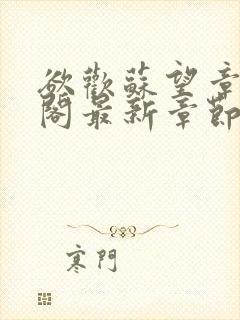 欲歡蘇望章
閣最新章節
寒門